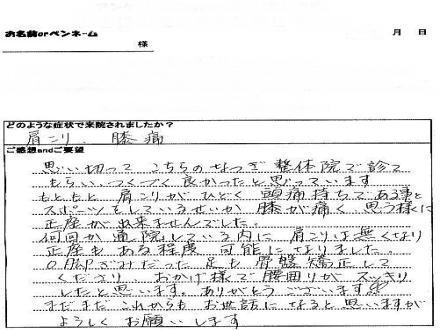 お名前orペンネーム
様
月 日
どのような症状で来院されましたか？
肩こり、膝痛
ご感想andご要望
思い切って こちらの なつぎ 整体院で診て
もらい つくづく 良かったと 思っています
もともと 肩こりが ひどく 頭痛持ちで ある事と
スポーツをしているせいか 膝が痛く 思う様に
正座が 出来ませんでした。
何回か通院している内に 肩こりは 無くなり
正座も ある程度 可能になりました
O脚ぎみだった 足も 骨盤矯正して
くださり、おかげ様で 腰回りが スッキリ
したと思います。ありがとうございます
まだまだ これからも お世話に なると 思いますが
よろしく お願いします